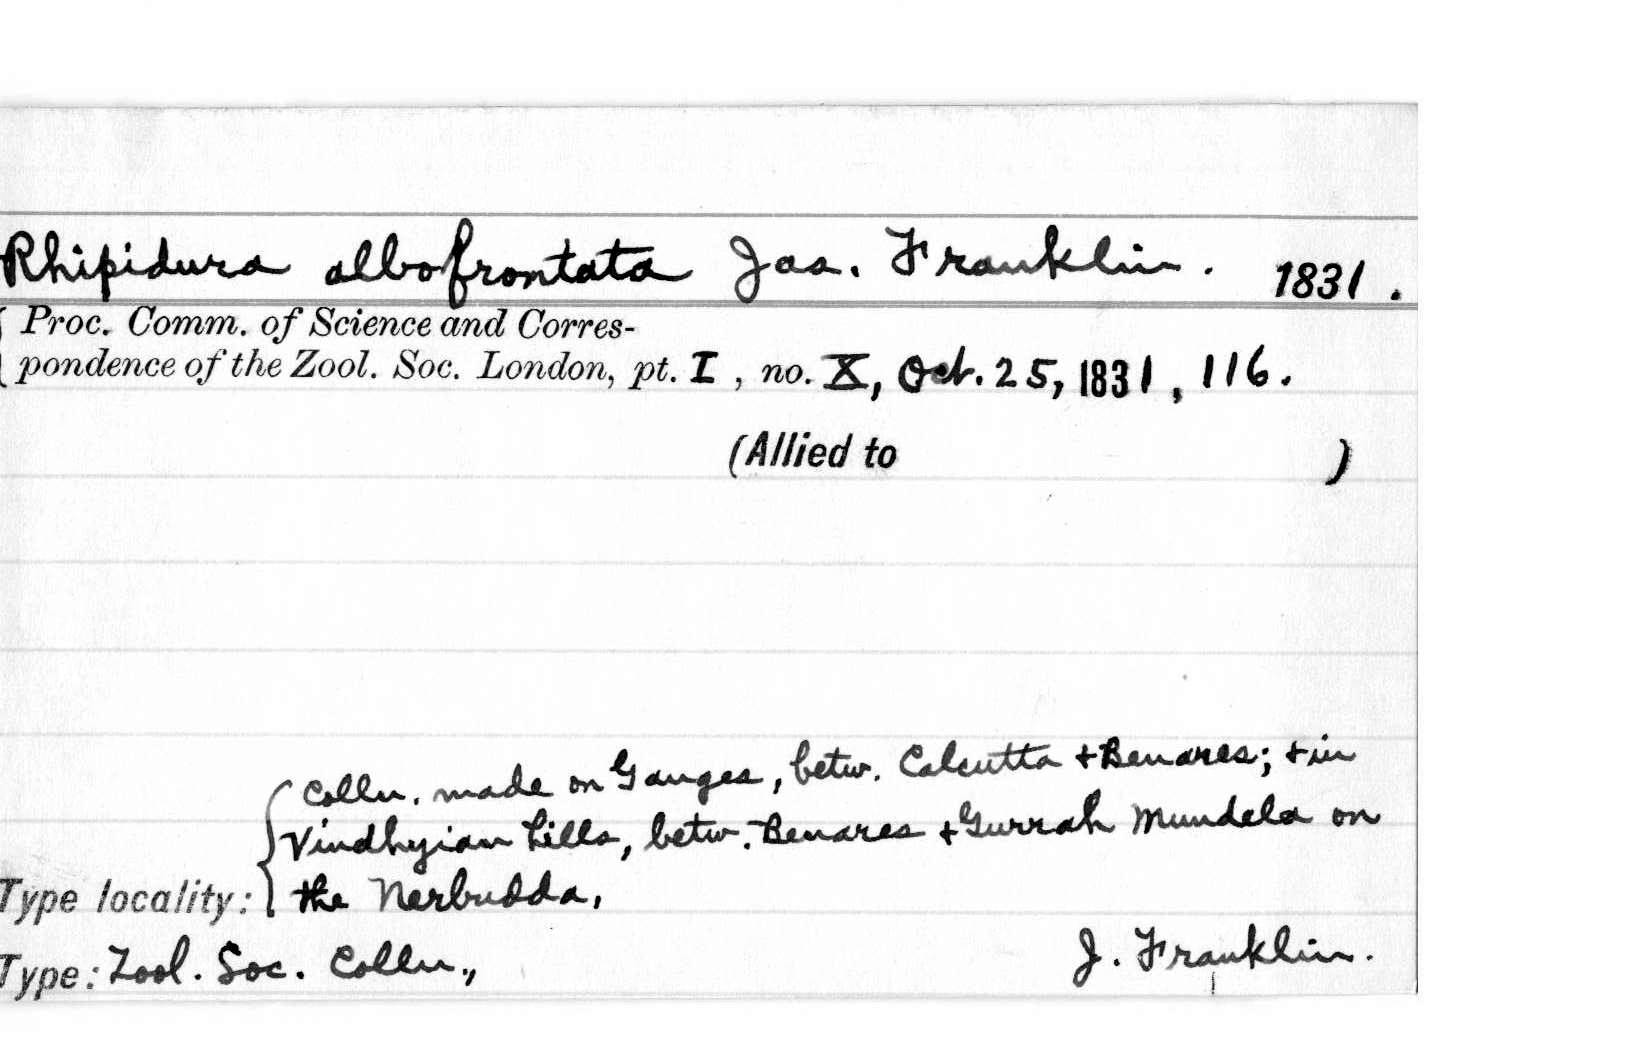 Rhipidura albofrontata Jas. Franklin. 1831.
{ Proc. Comm. of Science and Corres-
pondence of the Zool. Soc. London, pt. I, no. X, Oct. 25, 1831, 116.
(Allied to )
Colln. made on Ganges, betw. Calcutta + Benares; + in
Vindhyian hills, betw. Benares + Gurrah Mundela on
Type locality: { the Nerbudda,
Type: Zool. Soc. Colln., J. Franklin.